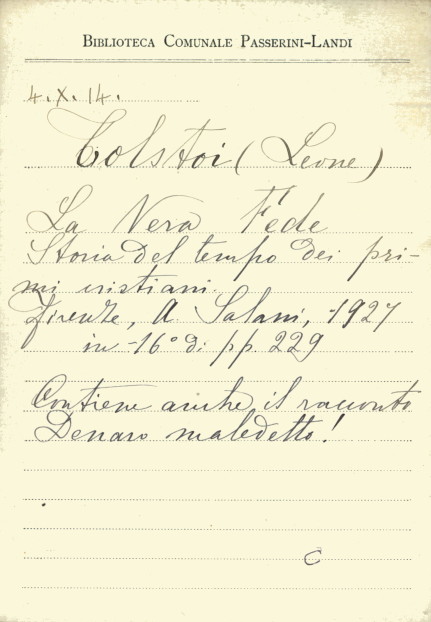 BIBLIOTECA COMUNALE PASSERINI-LANDI
4.X.14.
Tolstoi (Leone)
La Vera Fede
Storia del tempo dei pri-
mi cristiani.
Firenze, A. Salani, 1927
in-16° di pp. 229
Contiene anche il racconto
Denaro maledetto!
C